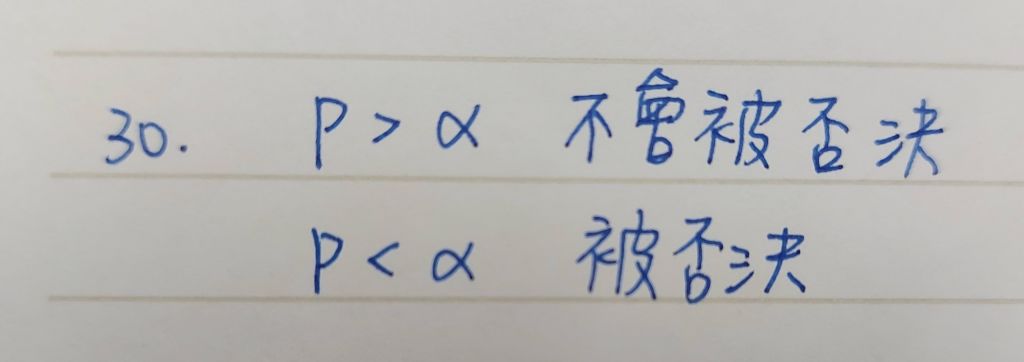 30. P > α 不會被否決
P < α 被否決